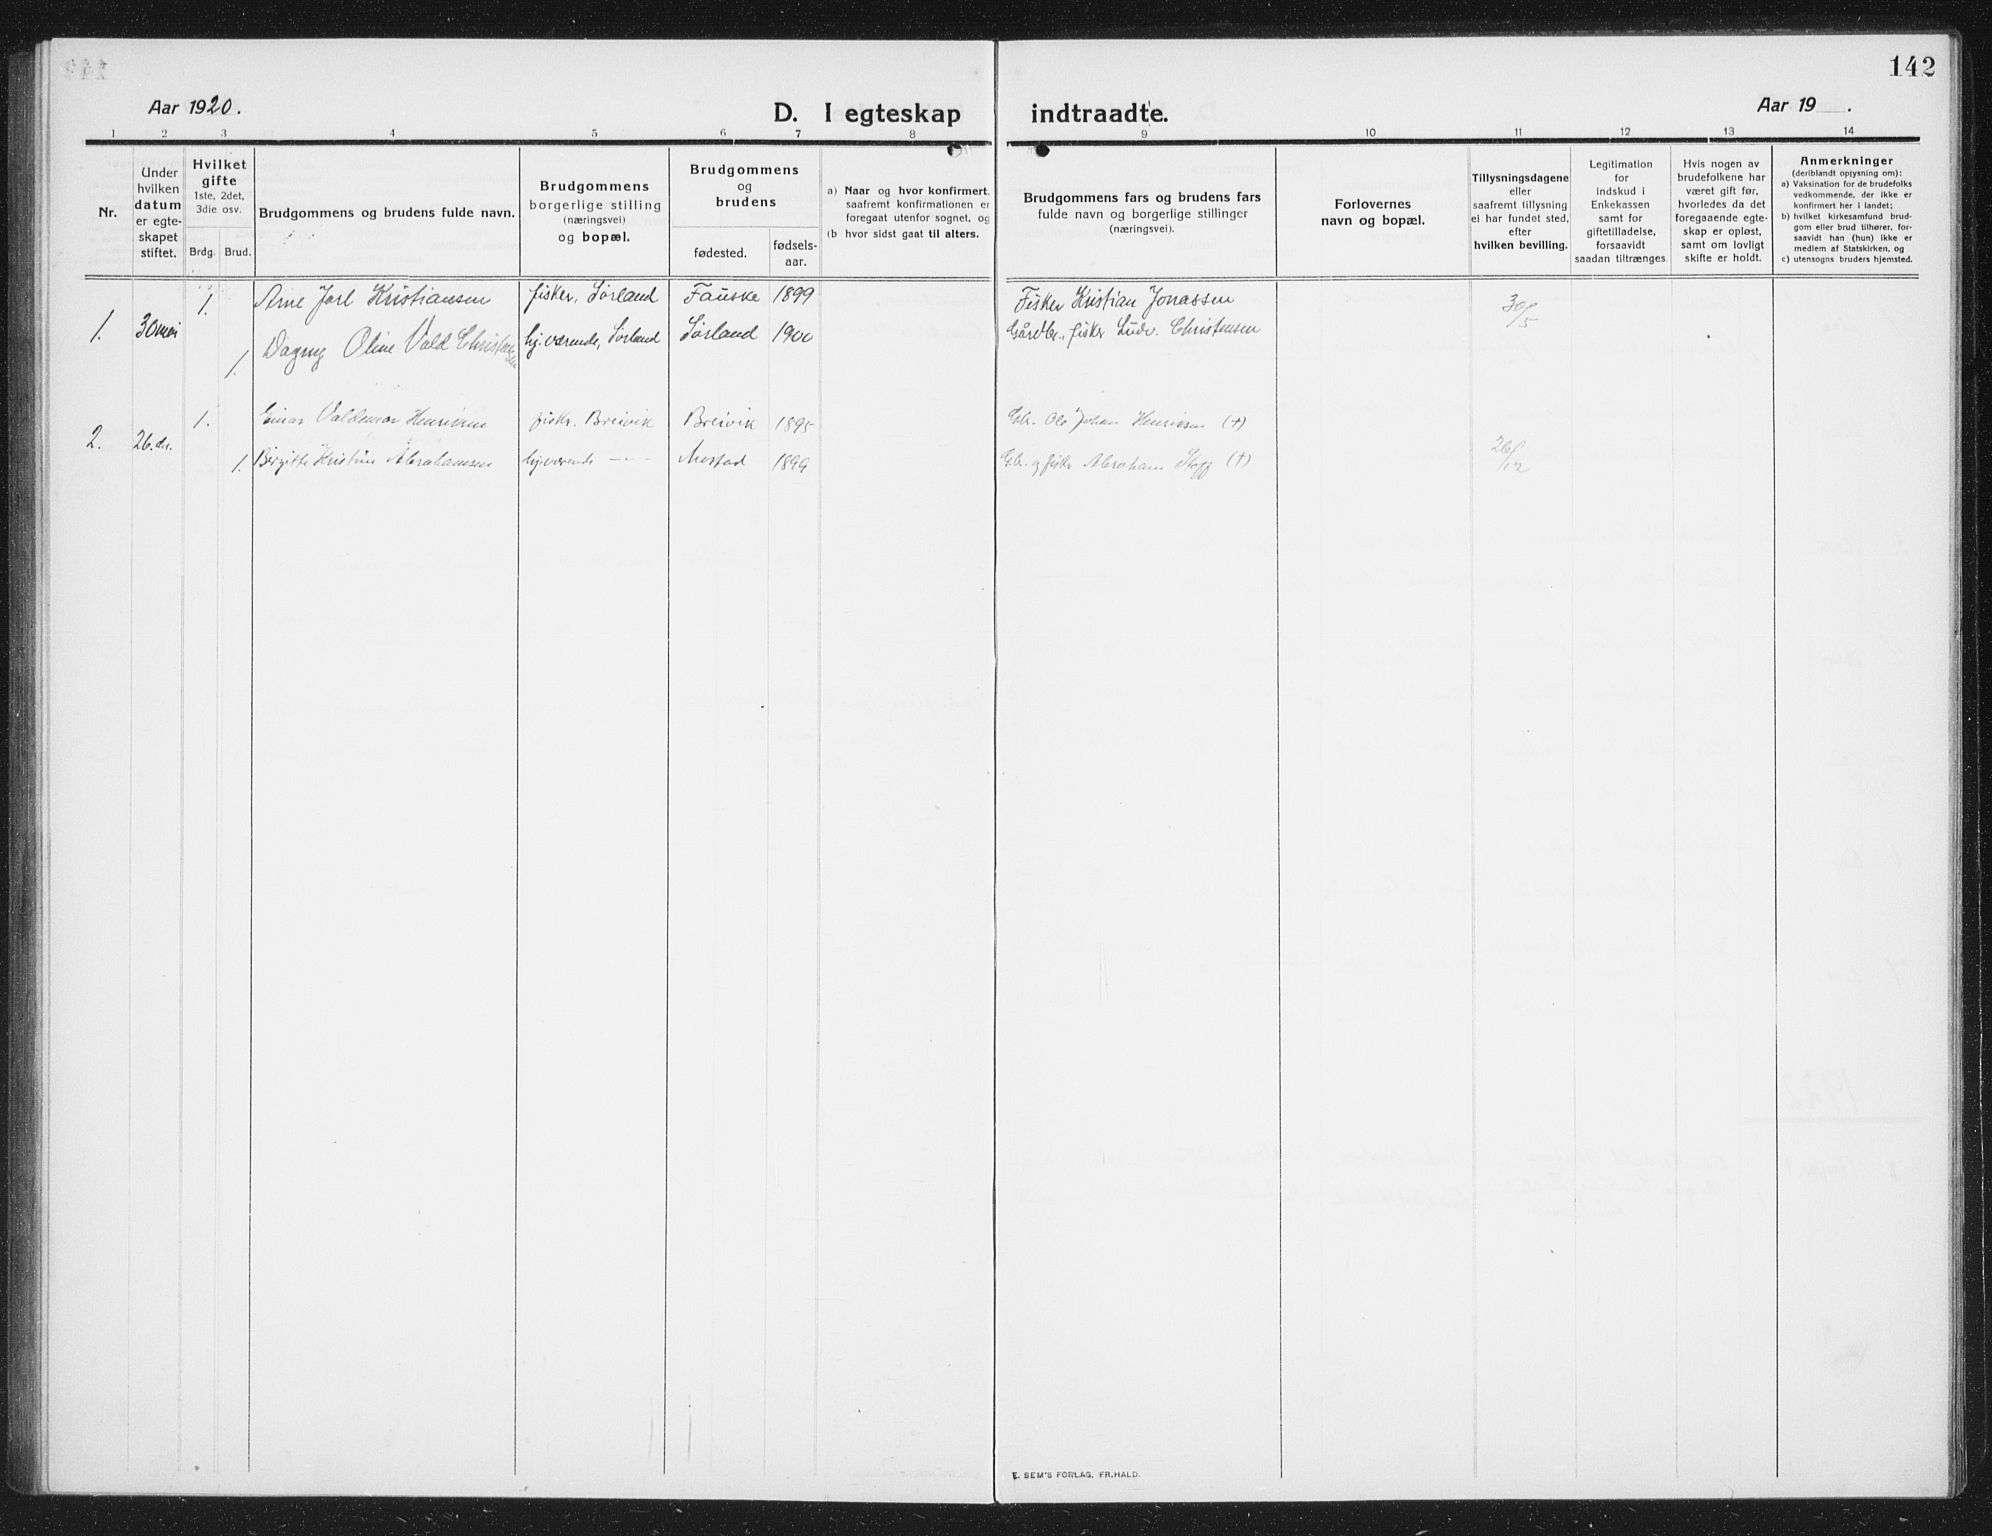 142
Aar 1920.
D. I egteskap indtraadte.
Aar 19 .
1 2 3 4 5 6 7 8 9 10 11 12 13 14
Nr.
Under
hvilken
datum
er egte-
skapet
stiftet.
Hvilket
gifte
1ste, 2det,
3die osv.
Brdg. Brud.
Brudgommens og brudens fulde navn.
Brudgommens
borgerlige stilling
(næringsvei)
og bopæl.
Brudgommens
og
brudens
fødested.
fødsels-
aar.
a) Naar og hvor konfirmert,
saafremt konfirmationen er
foregaat utenfor sognet, og
(b hvor sidst gaat til alters.
Brudgommens fars og brudens fars
fulde navn og borgerlige stillinger
(næringsvei).
Forlovernes
navn og bopæl.
Tillysningsdagene
eller
saafremt tillysning
ei har fundet sted,
efter
hvilken bevilling.
Legitimation
for
indskud i
Enkekassen
samt for
giftetilladelse,
forsaavidt
saadan tiltrænges
Hvis nogen av
brudefolkene har
været gift før,
hvorledes da det
foregaaende egte-
skap er opløst,
samt om lovligt
skifte er holdt.
Anmerkninger
(deriblandt opjysning om):
a) Vaksination for de brudefolks
vedkommende, der ikke er
konfirmert her i landet;
b) hvilket kirkesamfund brud-
gom eller brud tilhører, for-
saavidt han (hun) ikke er
medlem af Statskirken, og
c) utensogns bruders hjemsted.
1. Arne Jarl Kristiansen fisker, Sørland Fauske 1899 Fisker Kristian Jonassen 30/5
1. 30 mai
1. Dagny Oline Vald Christensen hj.værende, Sørland Sørland 1900 Gårdbr., fisker Ludv. Christensen
1. Einar Valdemar Henriksen fisker. Breivik Breivik 1895 Gbr. Ole Johan Henriksen (+)
2. 26. ds. 26/12
1. Birgitte Kristine Abrahamsen hjværende - - - Mostad 1899 Gbr. og fisker Abraham (+)
E. SEM'S FORLAG, FR.HALD.